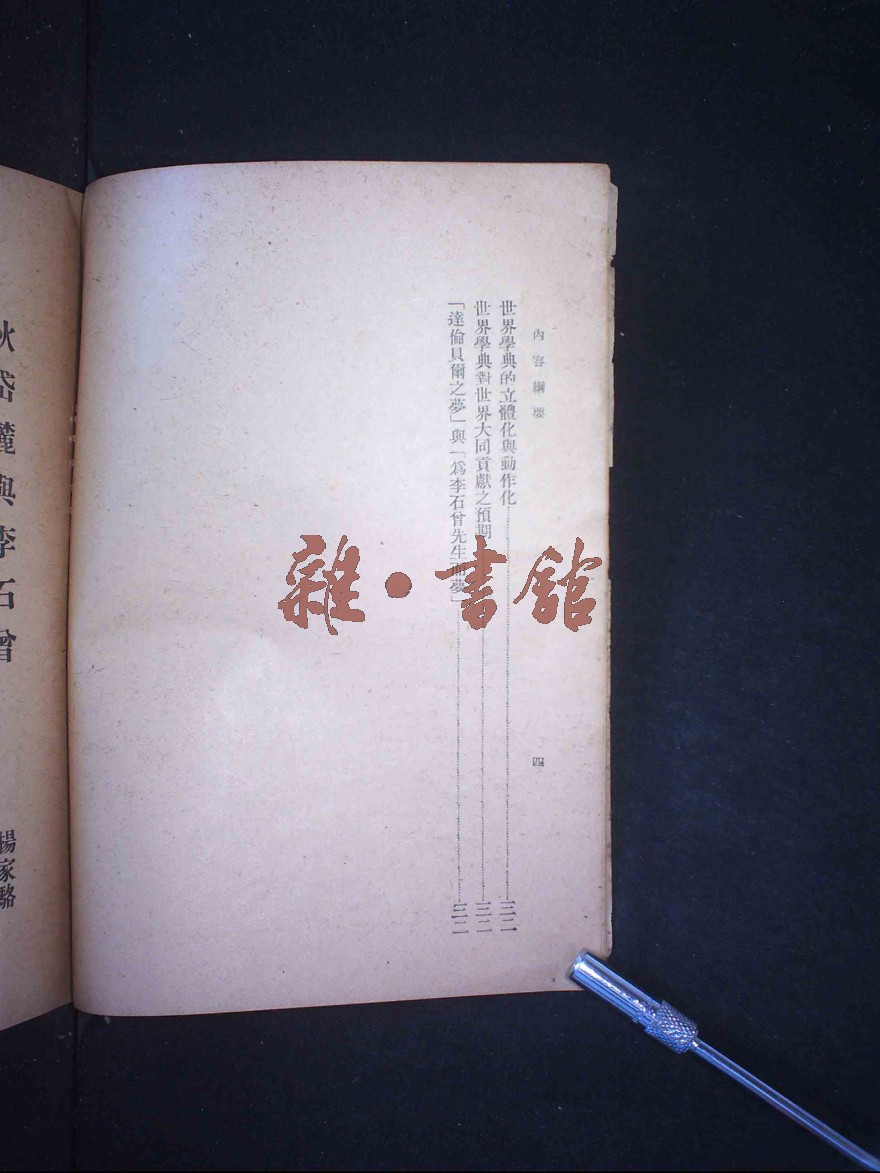 內容綱要 四
世界學典的立體化與動作化……三二
世界學典對世界大同貢獻之預期……三二
「達倫貝爾之夢」與「爲李石曾先生而夢」……三二
狄岱麓與李石曾
楊家駱
雜·書館